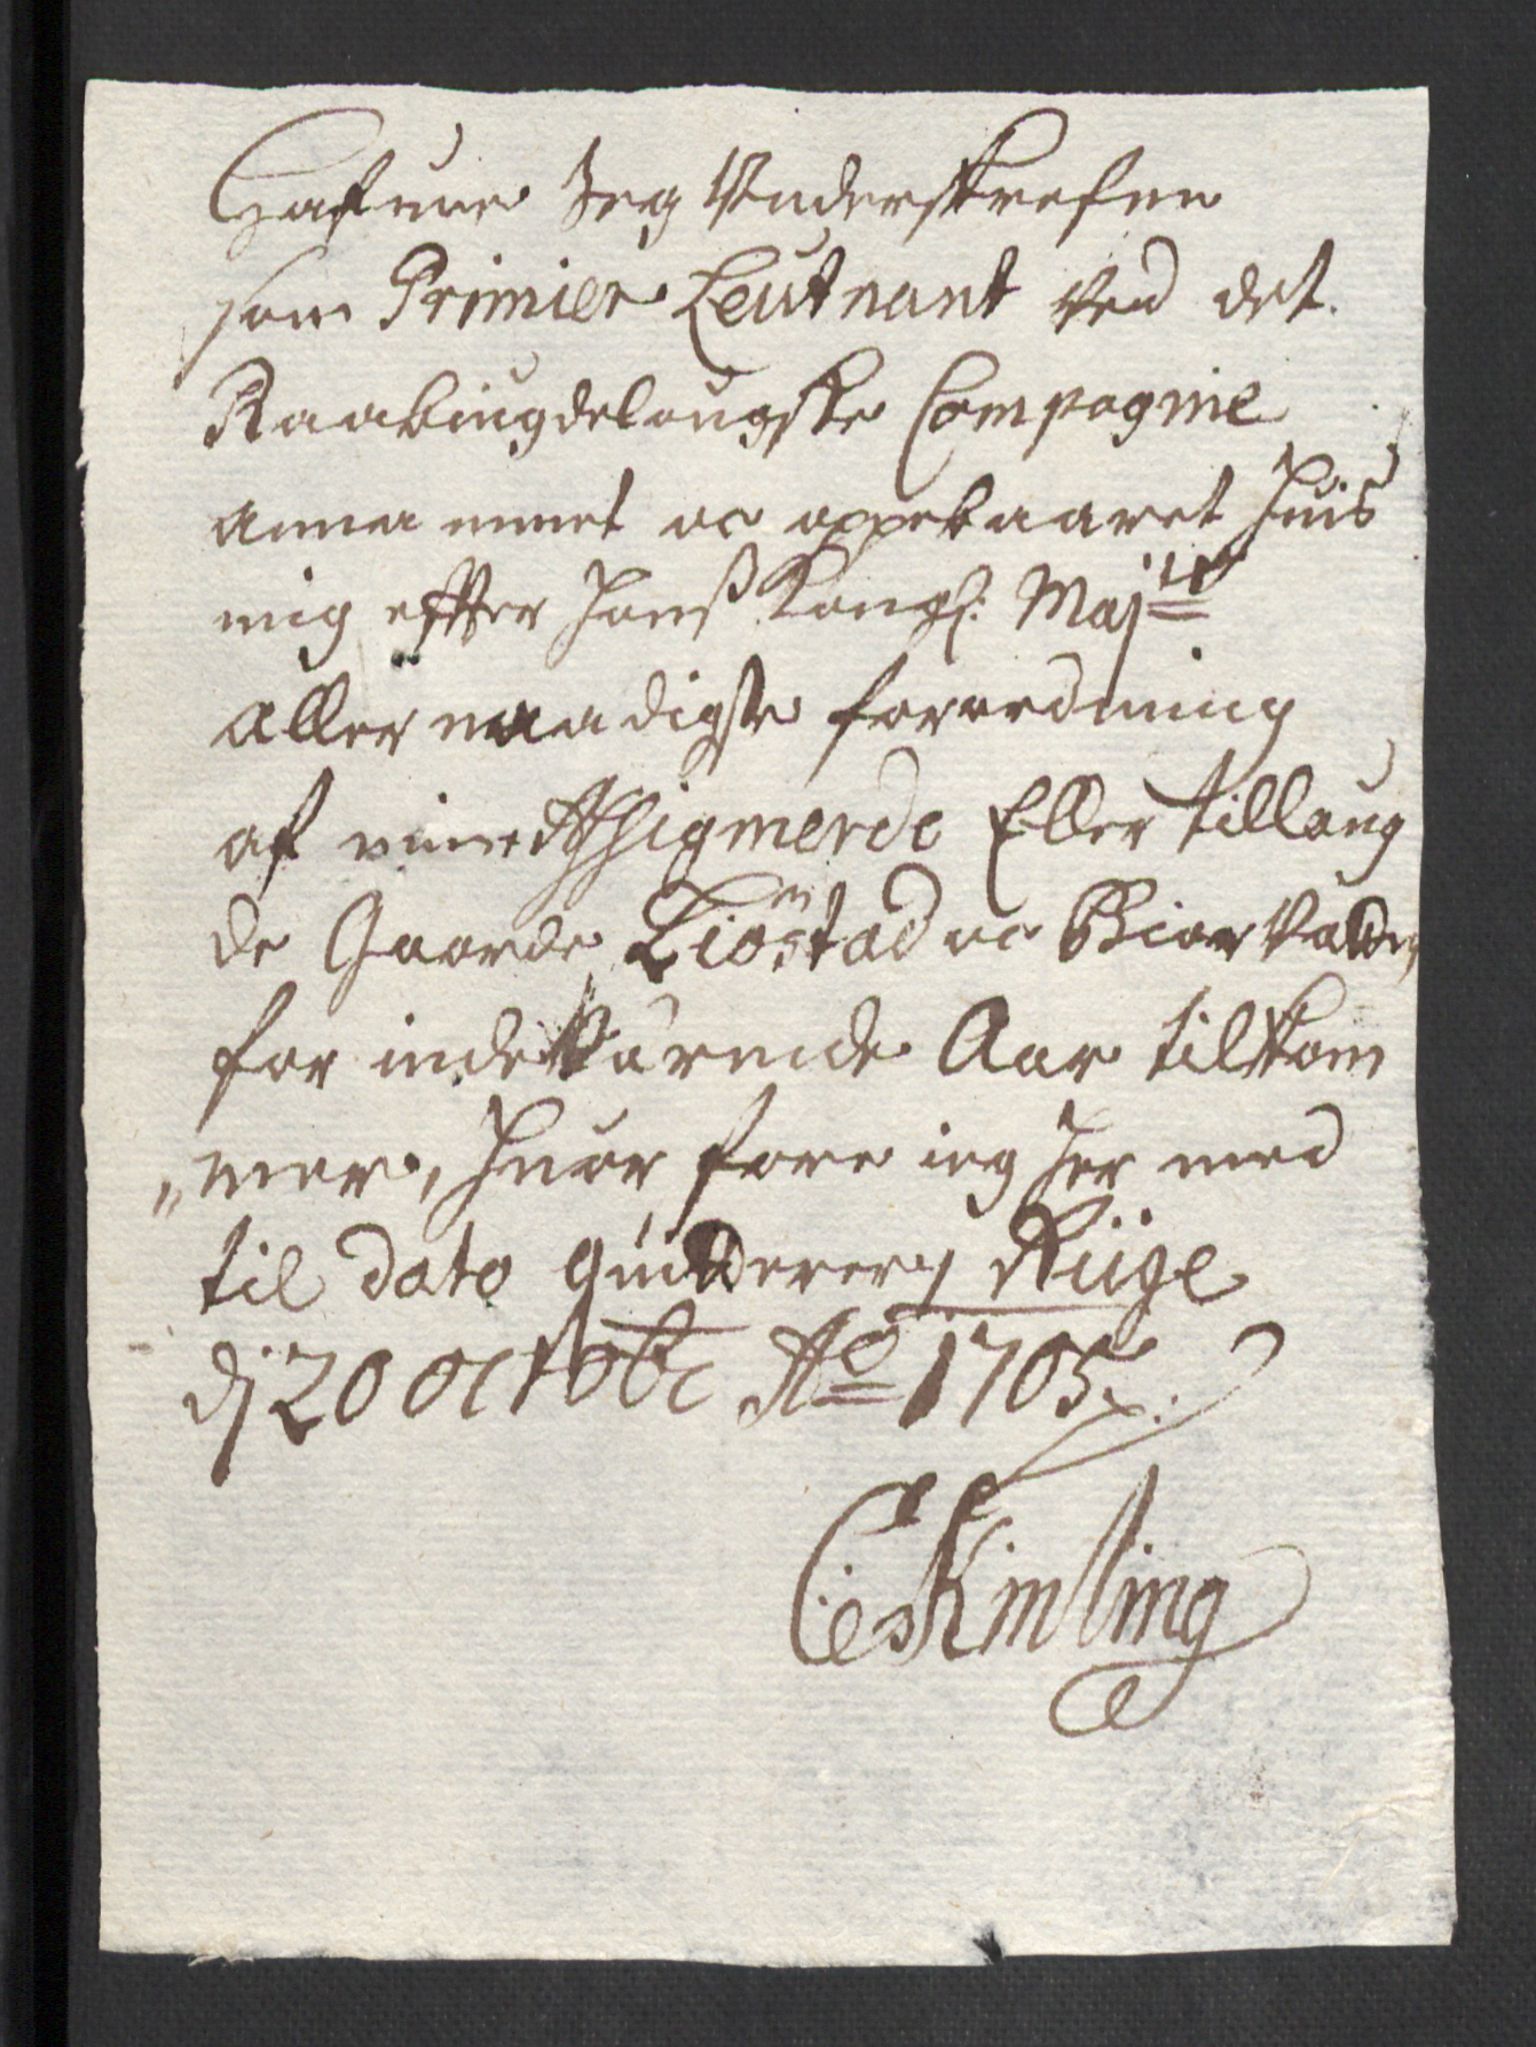 Hafuer Jeg Underskrefven
som Primier Leutnant ved det
Raabiugdelaugske Compagnie
annammet oc oppebaaret Huis
mig effter Hans Kongl: Maj:ts
allernaadigste forordning
af mine Assignerde Eller tillaug
de Gaarde Liöstad oc
for indeværende Aar tilkom
„mer, Huor fore ieg Her med
til dato qvitterer, Riige
dj 20 octobr Ao 1705